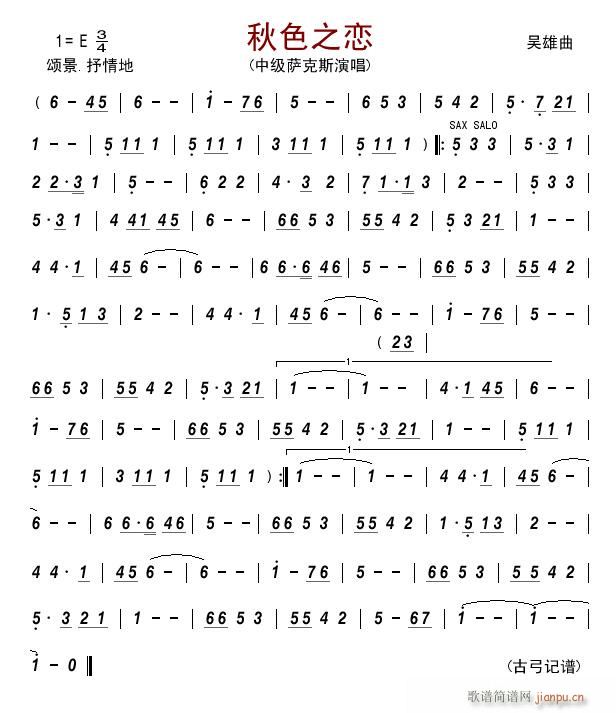 秋色之恋
1= E 3/4
吴雄曲
颂景.抒情地
(中级萨克斯演唱)
( 6 - 45 | 6 - - | 6 - - | i - 76 | 5 - - | 6 5 3 | 5 4 2 | 5· 7 21 |
SAX SALO
1 - - | 5 11 1 | 5 11 1 | 3 11 1 | 5 11 1 ) ‖: 5 3 3 | 5·3 1 |
2 2·3 1 | 5 - - | 6 2 2 | 4· 3 2 | 7 1·1 3 | 2 - - | 5 3 3 |
5·3 1 | 4 41 45 | 6 - - | 66 5 3 | 55 4 2 | 5 3 21 | 1 - - |
4 4·1 | 45 6 - | 6 - - | 6 6·6 46 | 5 - - | 66 5 3 | 55 4 2 |
1· 5 1 3 | 2 - - | 4 4·1 | 45 6 - | 6 - - | i - 76 | 5 - - |
( 23 |
1
66 5 3 | 55 4 2 | 5·3 21 | 1 - - | 1 - - | 4·1 45 | 6 - - |
i - 76 | 5 - - | 66 5 3 | 55 4 2 | 5·3 21 | 1 - - | 5 11 1 |
1
5 11 1 | 3 11 1 | 5 11 1 ) :‖ 1 - - | 1 - - | 4 4·1 | 45 6 - |
6 - - | 6 6·6 46 | 5 - - | 66 5 3 | 55 4 2 | 1·5 13 | 2 - - |
4 4· 1 | 45 6 - | 6 - - | i - 76 | 5 - - | 66 5 3 | 55 4 2 |
5· 3 2 1 | 1 - - | 66 5 3 | 55 4 2 | 5 - 67 | i - - | i - - |
i - 0 ‖
(古弓记谱)
歌谱简谱网
jianpu.cn